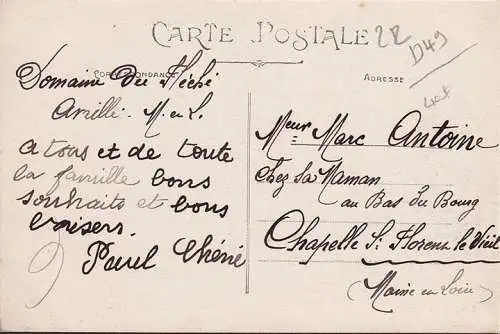 CARTE POSTALE
22
D49
CORRESPONDANCE
ADRESSE
Domaine du Fléché
Avrillé. M. et L.
a tous et de toute
la famille bons
souhaits et bons
baisers.
Paul Chéné
Meur Marc Antoine
Chez Sa Maman
au Bas du Bourg
Chapelle St Florent le Vieil
(Maine et Loire)